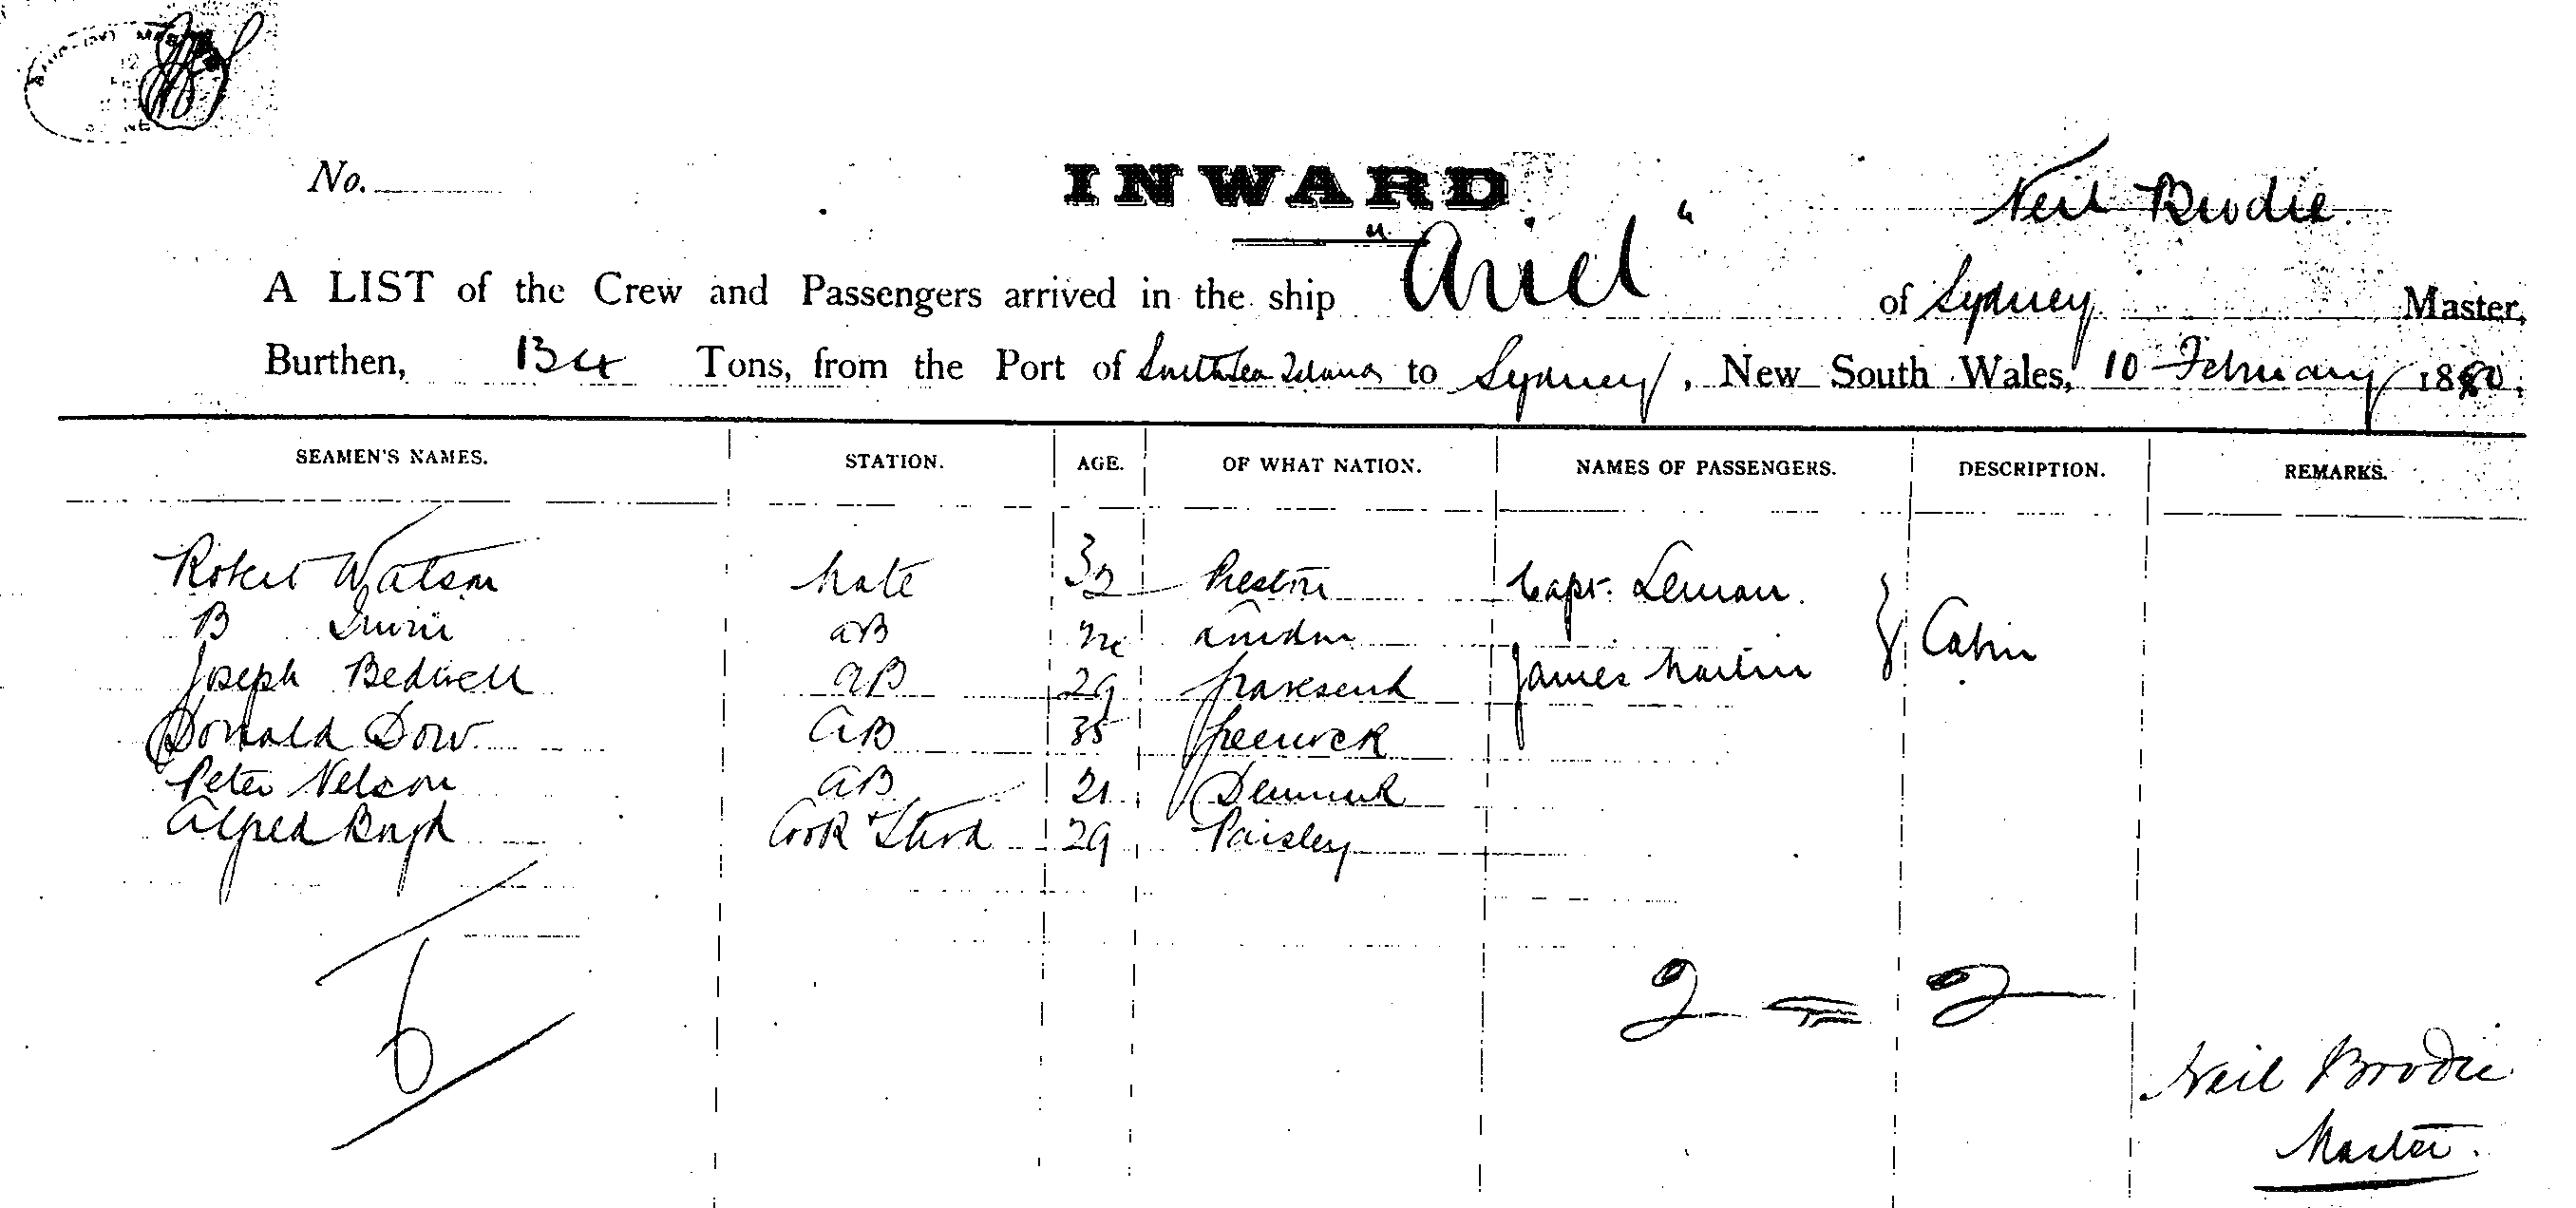 No.
INWARD
Neil Brodie.
A LIST of the Crew and Passengers arrived in the ship "Ariel" of Sydney Master,
Burthen, 134 Tons, from the Port of South Sea Islands to Sydney, New South Wales, 10 February 1880,
SEAMEN'S NAMES. STATION. AGE. OF WHAT NATION. NAMES OF PASSENGERS. DESCRIPTION. REMARKS.
Robert Watson Mate 32 Preston Capt. Leman. Cabin
B Irwin AB London
Joseph Bedwell AB 29 Gravesend James Martin
Donald Dow AB 35 Greenock
Peter Nelson AB 21 Denmark
Alfred Boyd Cook & Stwd 29 Paisley
6
2 = 2
Neil Brodie
Master.